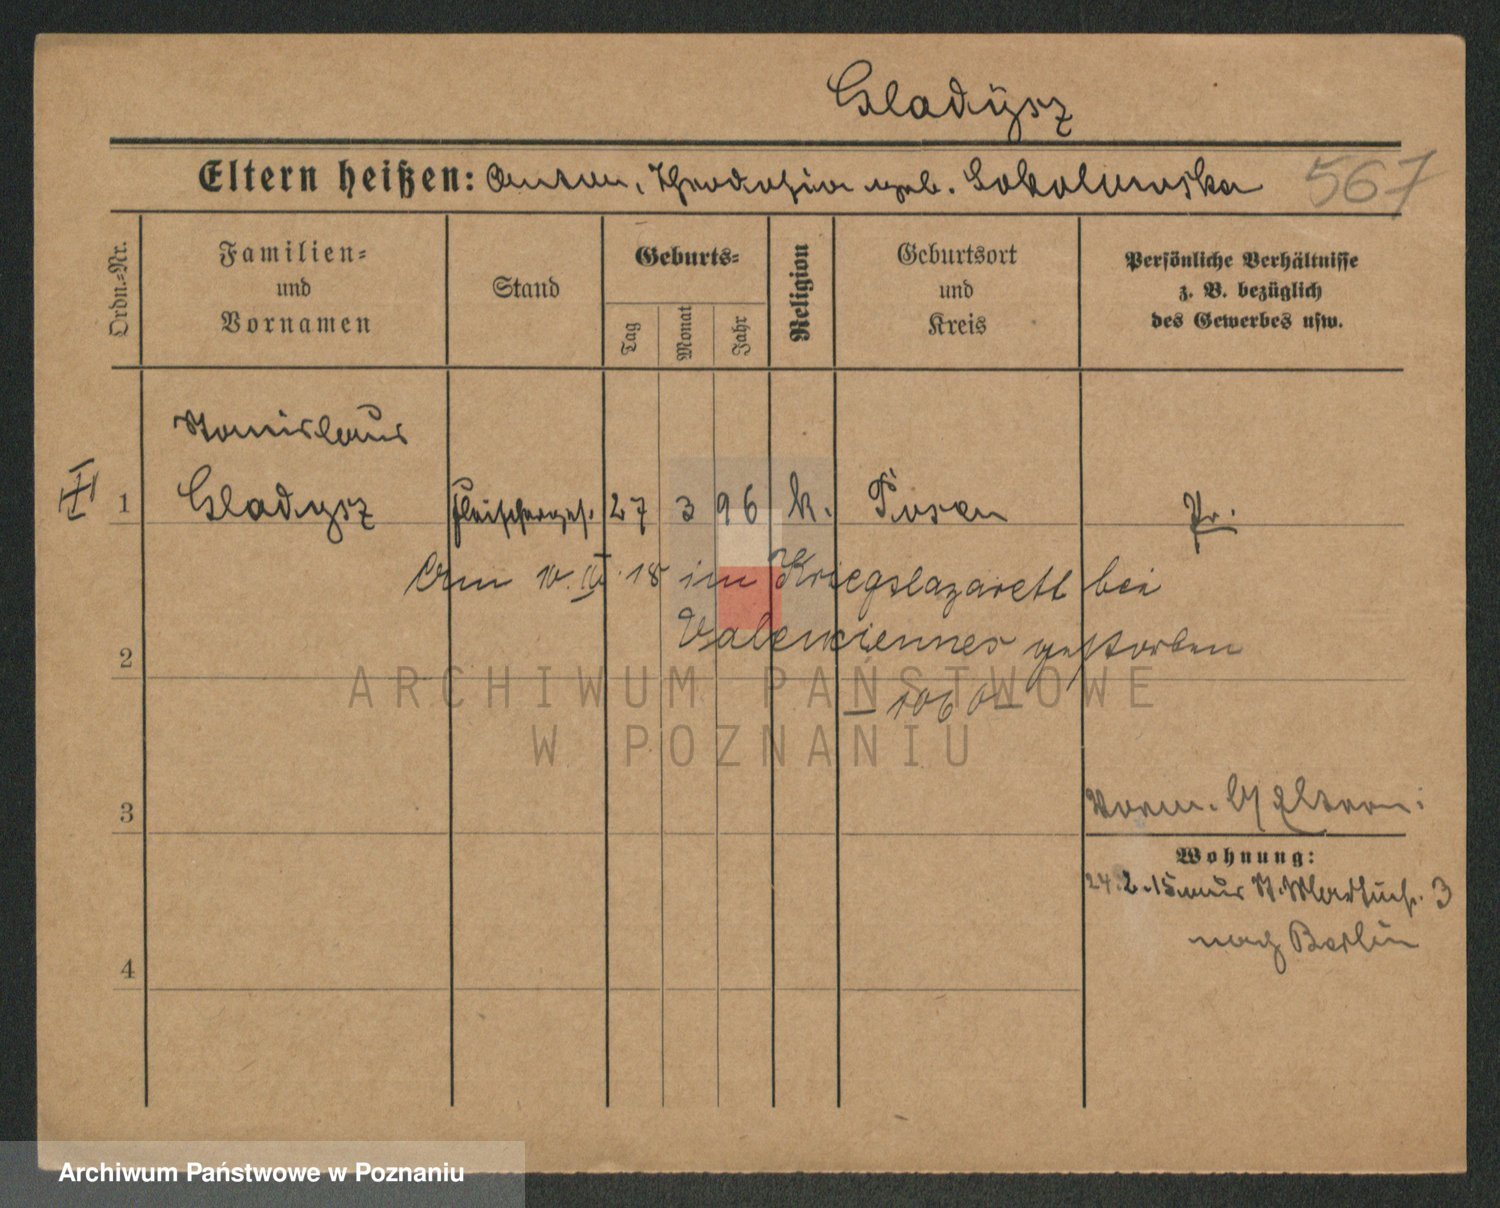 Gladÿsz
Eltern heißen: Anton, Theodosia geb. Sokolowska 567
Ordn.=Nr.
Familien=
und
Vornamen
Stand
Geburts=
Tag
Monat
Jahr
Religion
Geburtsort
und
Kreis
Persönliche Verhältnisse
z. B. bezüglich
des Gewerbes usw.
Stanislaus
1 Gladysz Fleischerges. 27 3 96 k. Posen Pr.
Am 10. IV. 18 im Kriegslazarett bei
2 Valenciennes gestorben
– 1060 –
ARCHIWUM PAŃSTWOWE
W POZNANIU
3
Eltern:
Wohnung:
24.2.15 St. 3
nach Berlin
4
Archiwum Państwowe w Poznaniu